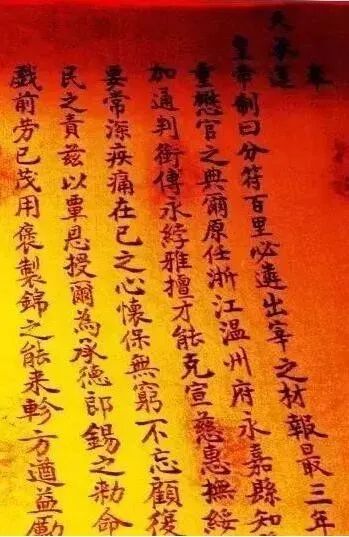 奉
天承運
皇帝制曰分符百里必遴出宰之材報最三年
重懋官之典爾原任浙江温州府永嘉縣知
加通判銜傅永綍雅擅才能克宣慈惠撫綏
要常深疾痛在已之心懷保無窮不忘顧復
民之責茲以覃恩授爾為承德郎錫之勅命
戲前劳已茂用褒製錦之能来軫方遒益勵